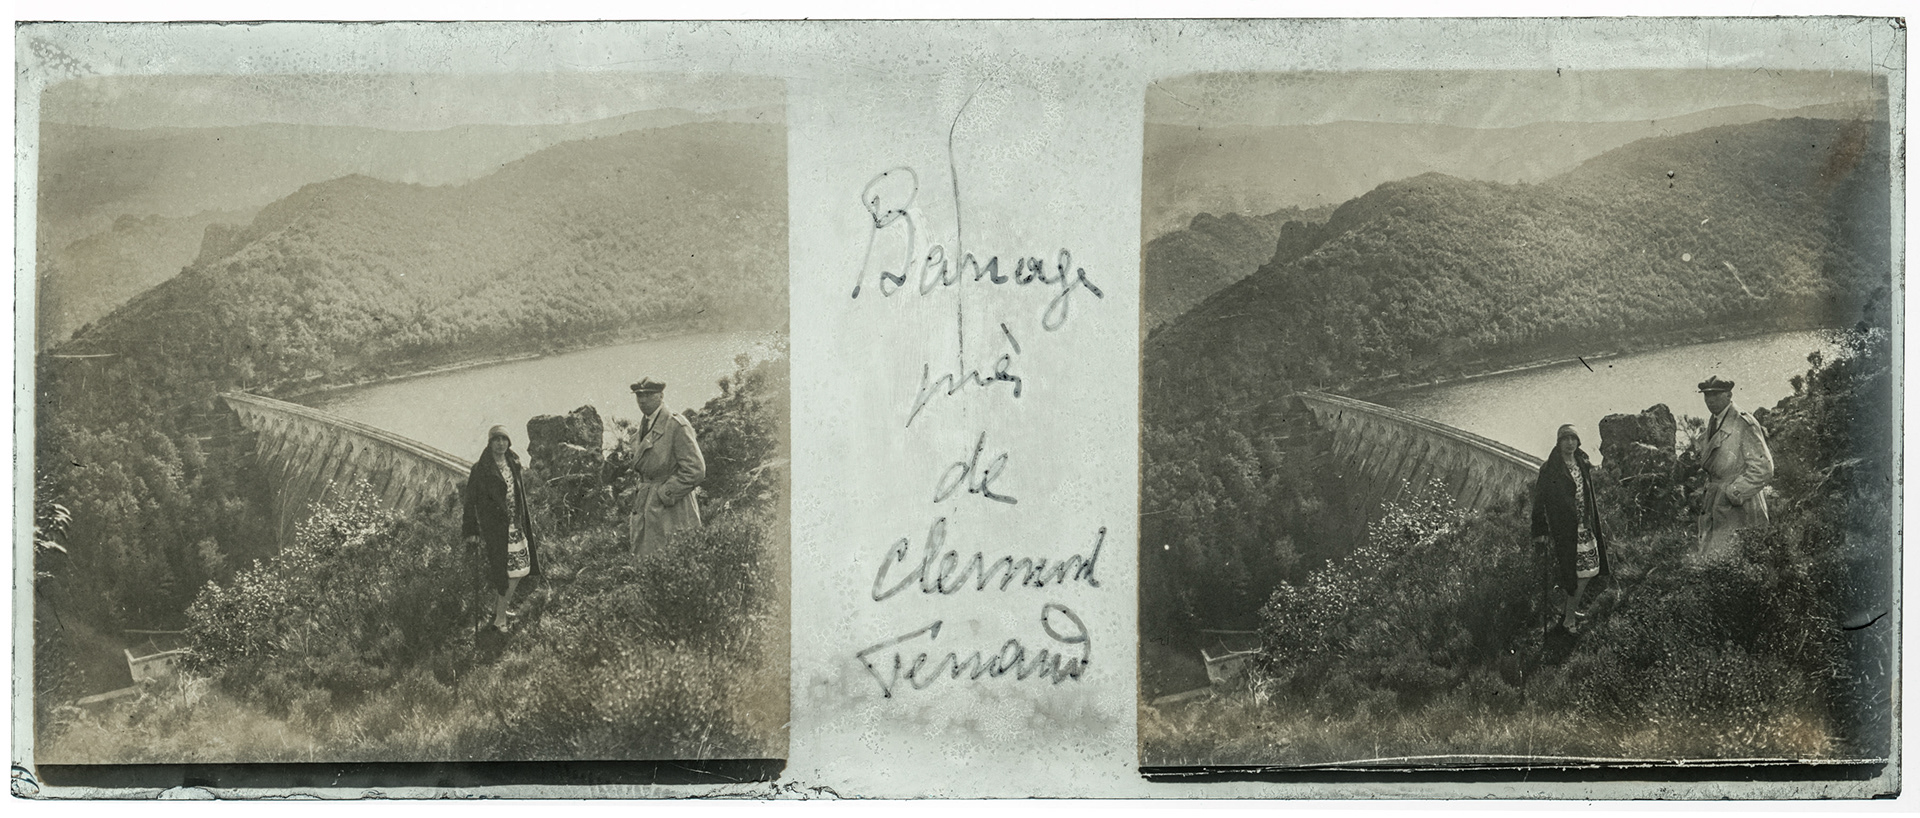 Barrage
près
de
Clermont
Ferrand